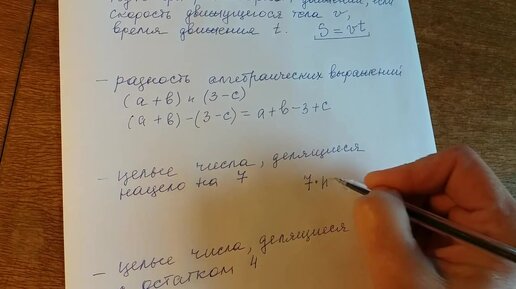 скорость движущегося тела v,
время движения t. S = vt
– разность алгебраических выражений
(a + b) и (3 – c)
(a + b) – (3 – c) = a + b – 3 + c
– целые числа, делящиеся
нацело на 7 7·n
– целые числа, делящиеся
остатком 4